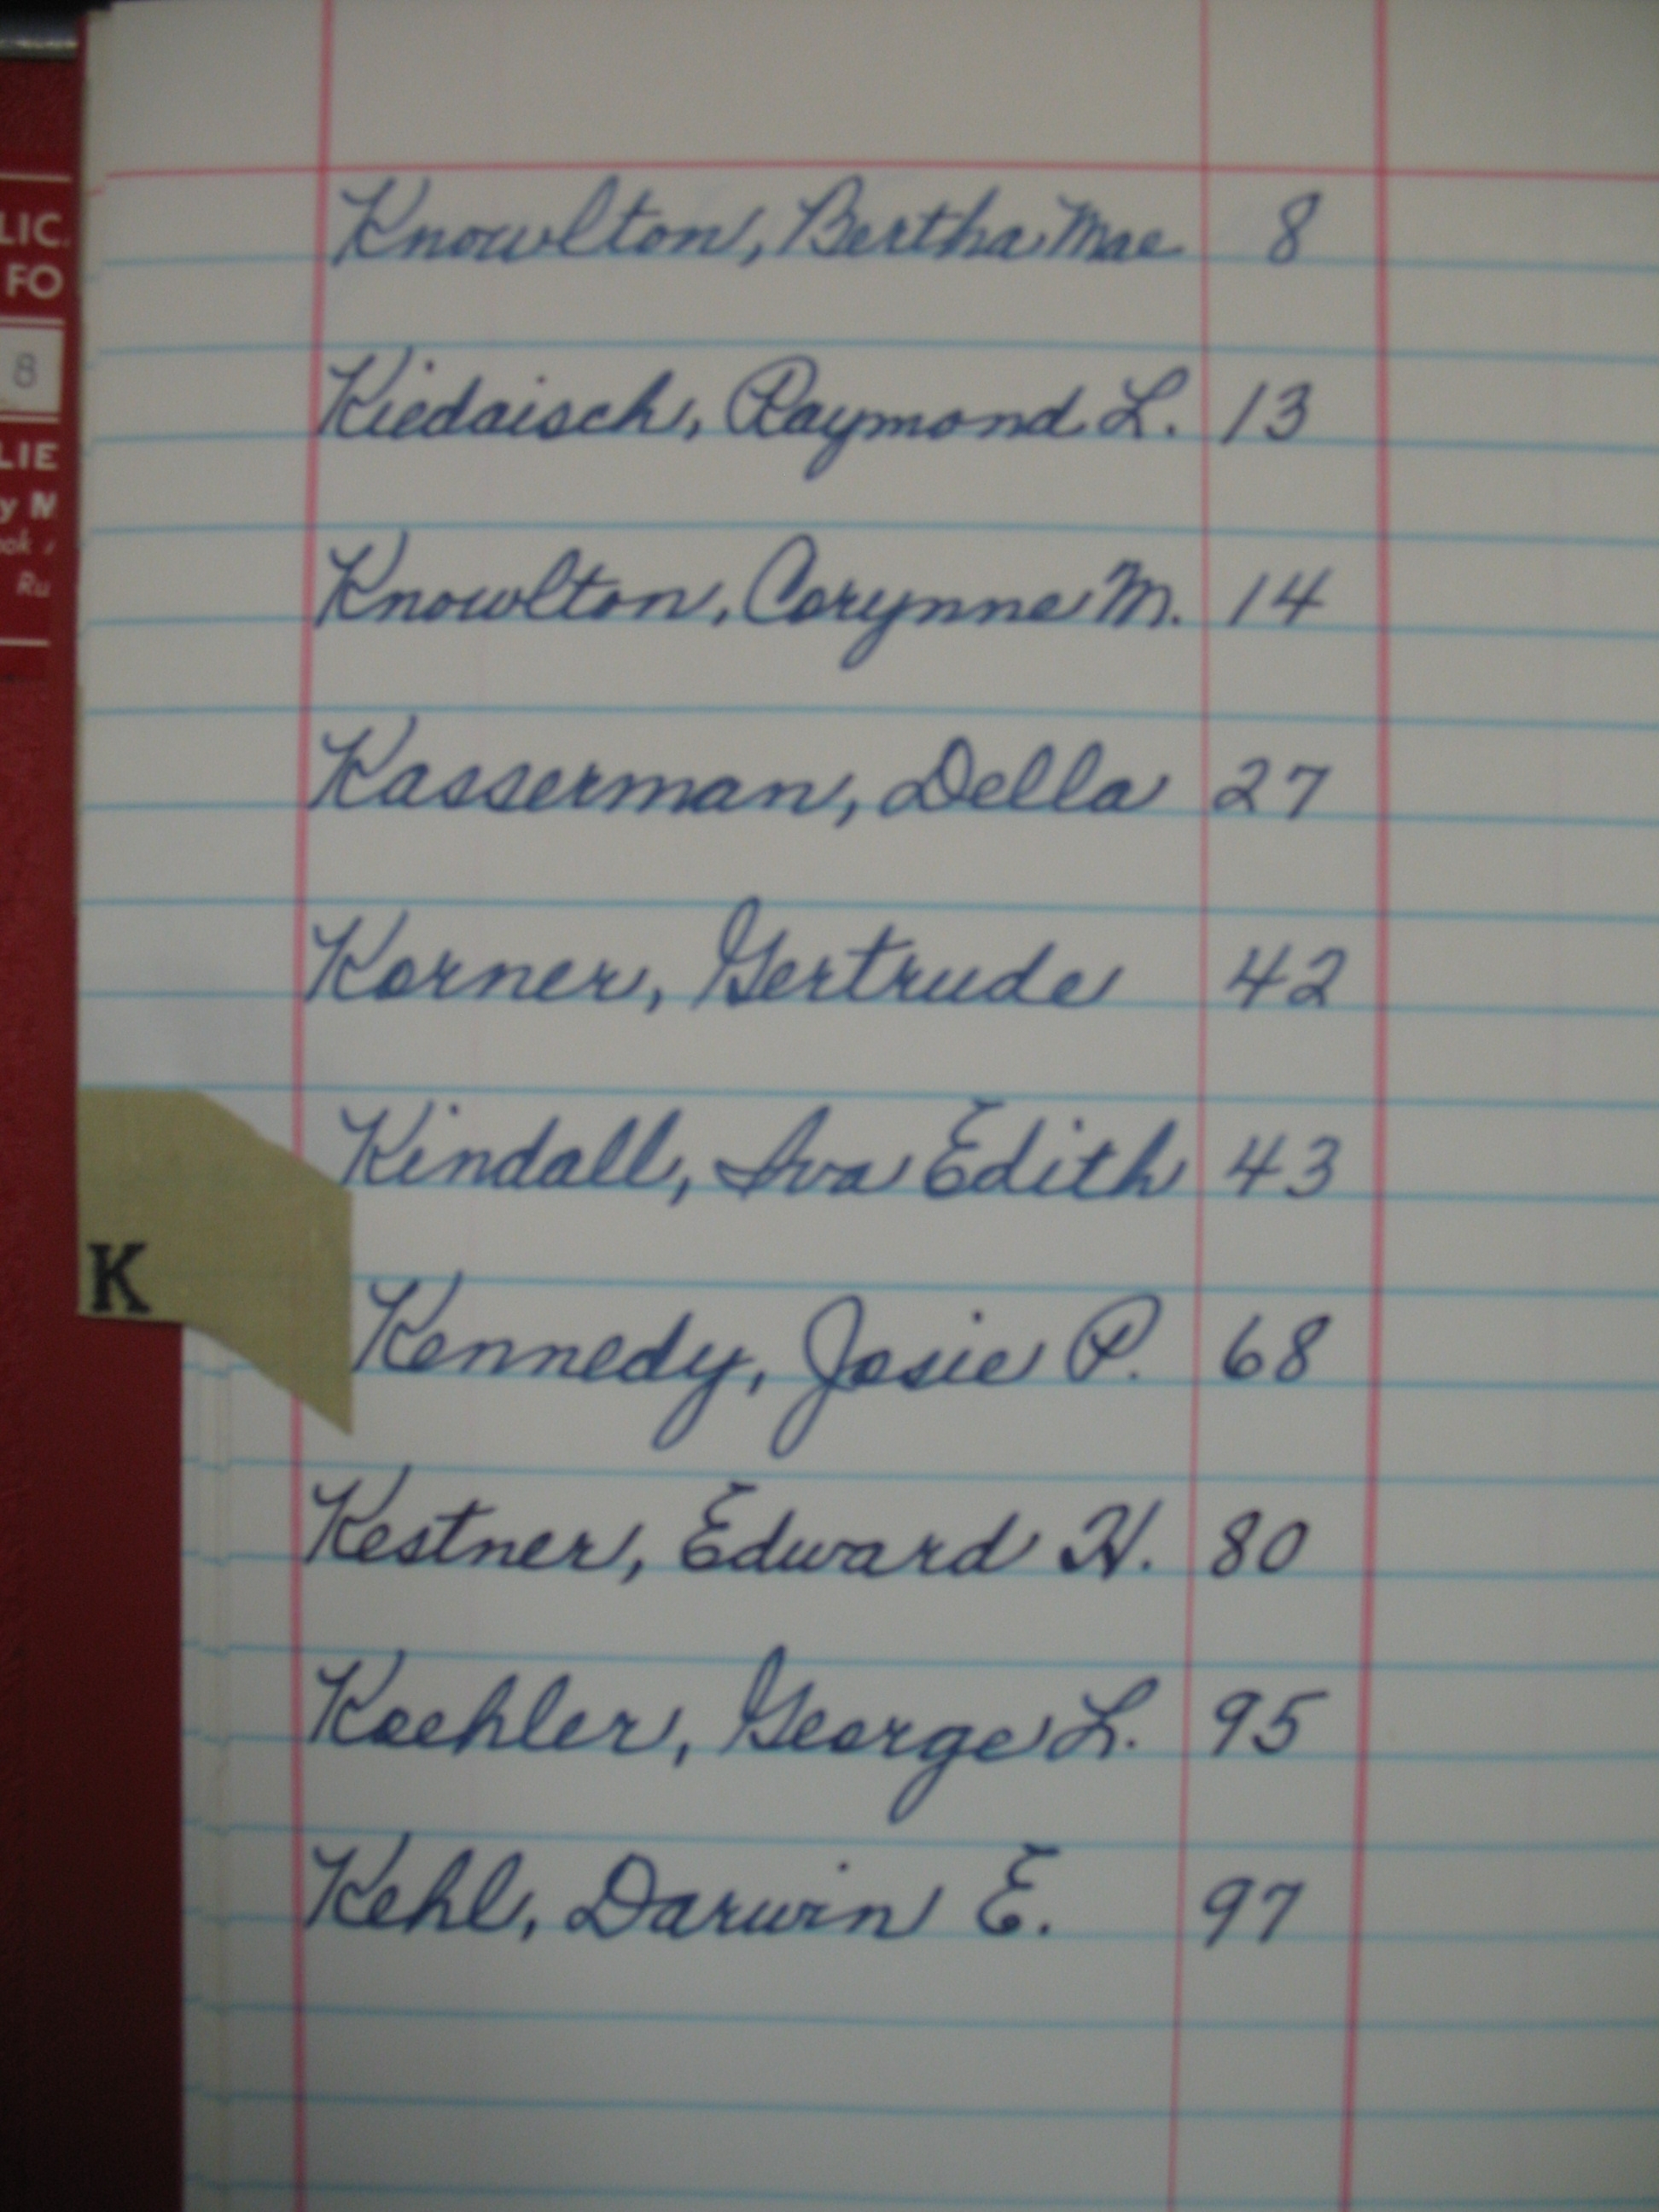 LIC.
FO
8
LIE
y M
ook
Ru
Knowlton, Bertha Mae 8
Kiedaisch, Raymond L. 13
Knowlton, Corynne M. 14
Kasserman, Della 27
Korner, Gertrude 42
Kindall, Iva Edith 43
K
Kennedy, Josie P. 68
Kestner, Edward H. 80
Koehler, George L. 95
Kehl, Darwin E. 97